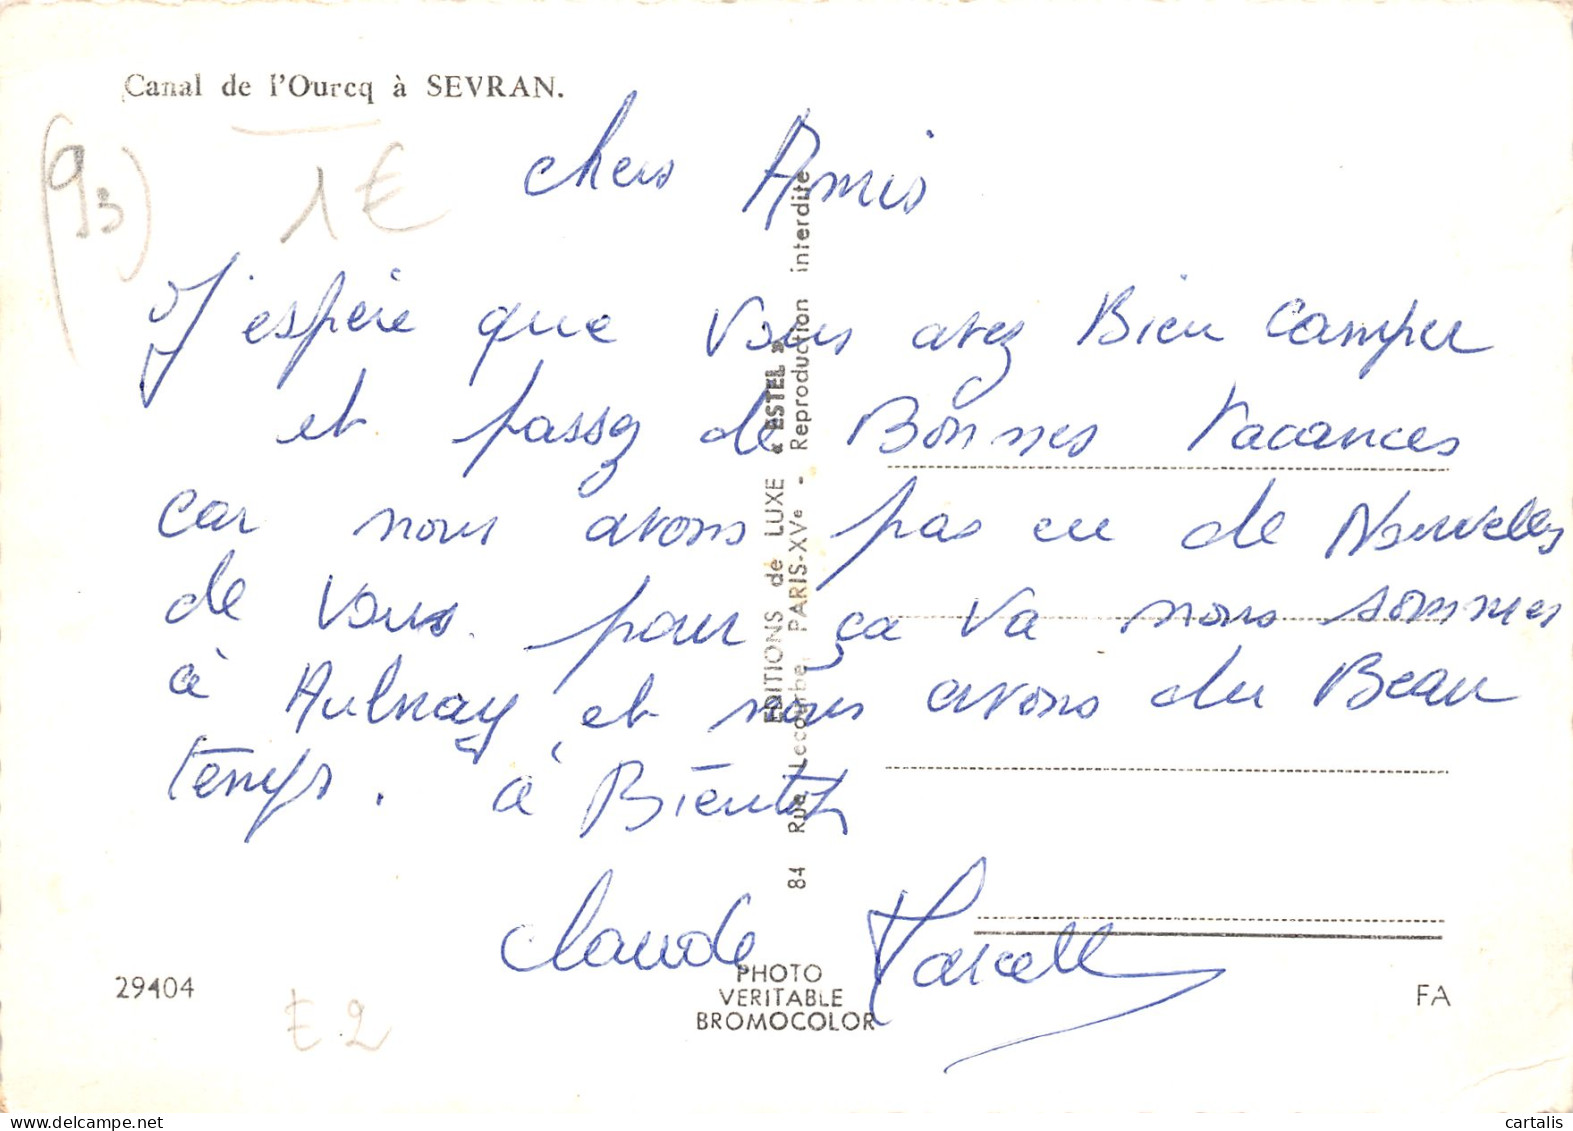 Canal de l'Ourcq à SEVRAN.
(93)
1€
chers Amis
J'espère que Vous avez Bien Camper
et passez de Bonnes Vacances
car nous avons pas eu de Nouvelles
de Vous. pour ça va nous sommes
à Aulnay et nous avons du Beau
temps. à Bientôt
Claude Marcell
EDITIONS de LUXE « ESTEL »
84 Rue Lecourbe, PARIS-XVe - Reproduction interdite
29404
€2
PHOTO
VERITABLE
BROMOCOLOR
FA
www.delcampe.net
cartalis